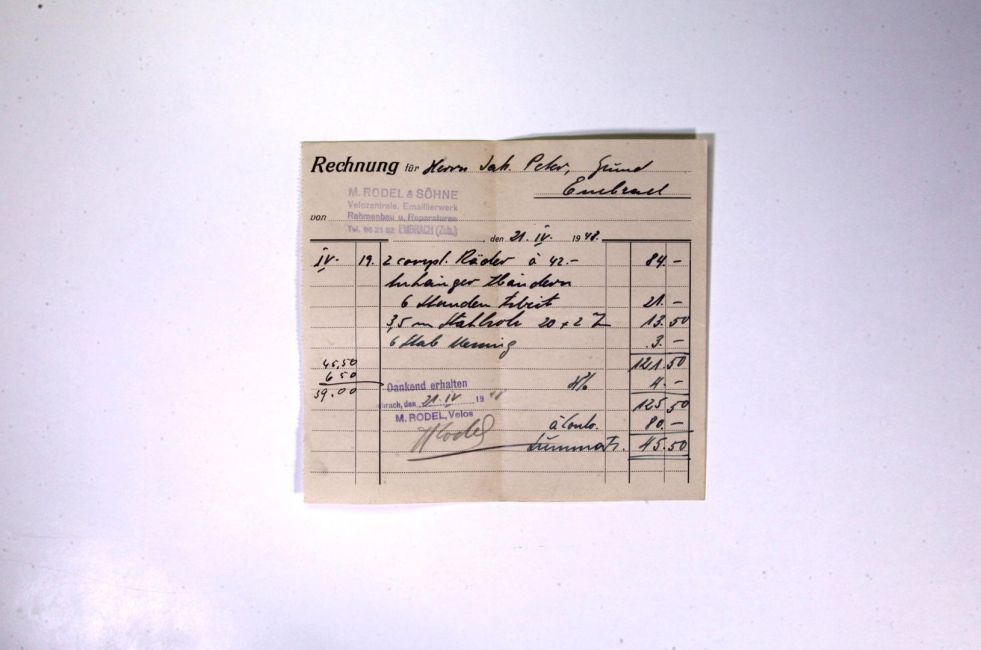 Rechnung für Herrn Jak. Peter, Grund
Embrach
M. RODEL & SÖHNE
Velozentrale, Emaillierwerk
von Rahmenbau u. Reparaturen
Tel. 96 21 62 EMBRACH (Zch.)
den 21. IV. 1948.
IV. 19. 2 compl. Räder à 42.- 84.-
Anhänger
6 Stunden Arbeit 21.-
3,5 m Stahlrohr 20 x 2 13.50
6 Stab Messing 3.-
45.50 121.50
6 50 4.-
39.00 Dankend erhalten 125.50
Embrach, den 21. IV 1948
M. RODEL, Velos à Conto. 80.-
MRodel 45.50